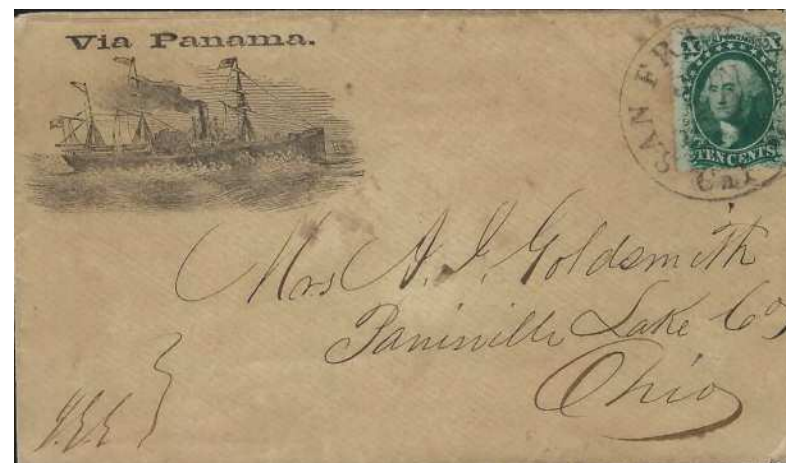 Via Panama.
SAN FRA
Cal
U.S. POSTAGE
TEN CENTS
Mrs A. J. Goldsmith
Painsville Lake Co,
Ohio